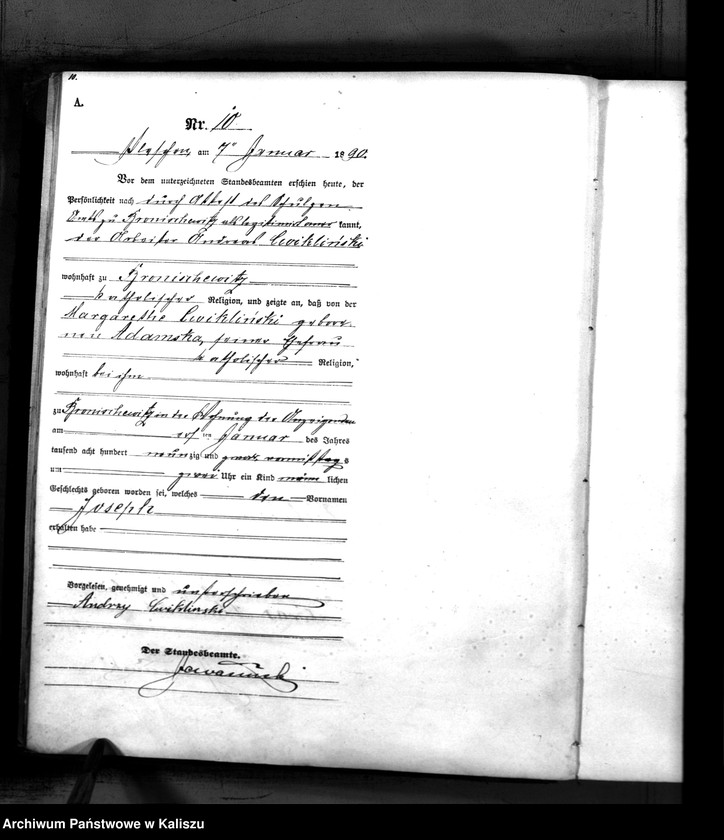 10.
A.
Nr. 10
Pleschen, am 7ⁿ Januar 1890.
Vor dem unterzeichneten Standesbeamten erschien heute, der
Persönlichkeit nach durch Attest des Schulzen
Amts zu Kronischewitz als legitimirt kannt,
der Arbeiter Andreas Cwikliński
wohnhaft zu Kronischewitz
katholischer Religion, und zeigte an, daß von der
Margarethe Cwikliński gebore
nen Adamska, seiner Ehefrau
katholischer Religion,
wohnhaft bei ihm
zu Kronischewitz in der Wohnung des Anzeigenden
am ersten Januar des Jahres
tausend acht hundert neunzig und vormittags
um zwei Uhr ein Kind männlichen
Geschlechts geboren worden sei, welches den Vornamen
Joseph
erhalten habe
Vorgelesen, genehmigt und unterschrieben
Andrzy Cwiklinske
Der Standesbeamte.
Archiwum Państwowe w Kaliszu